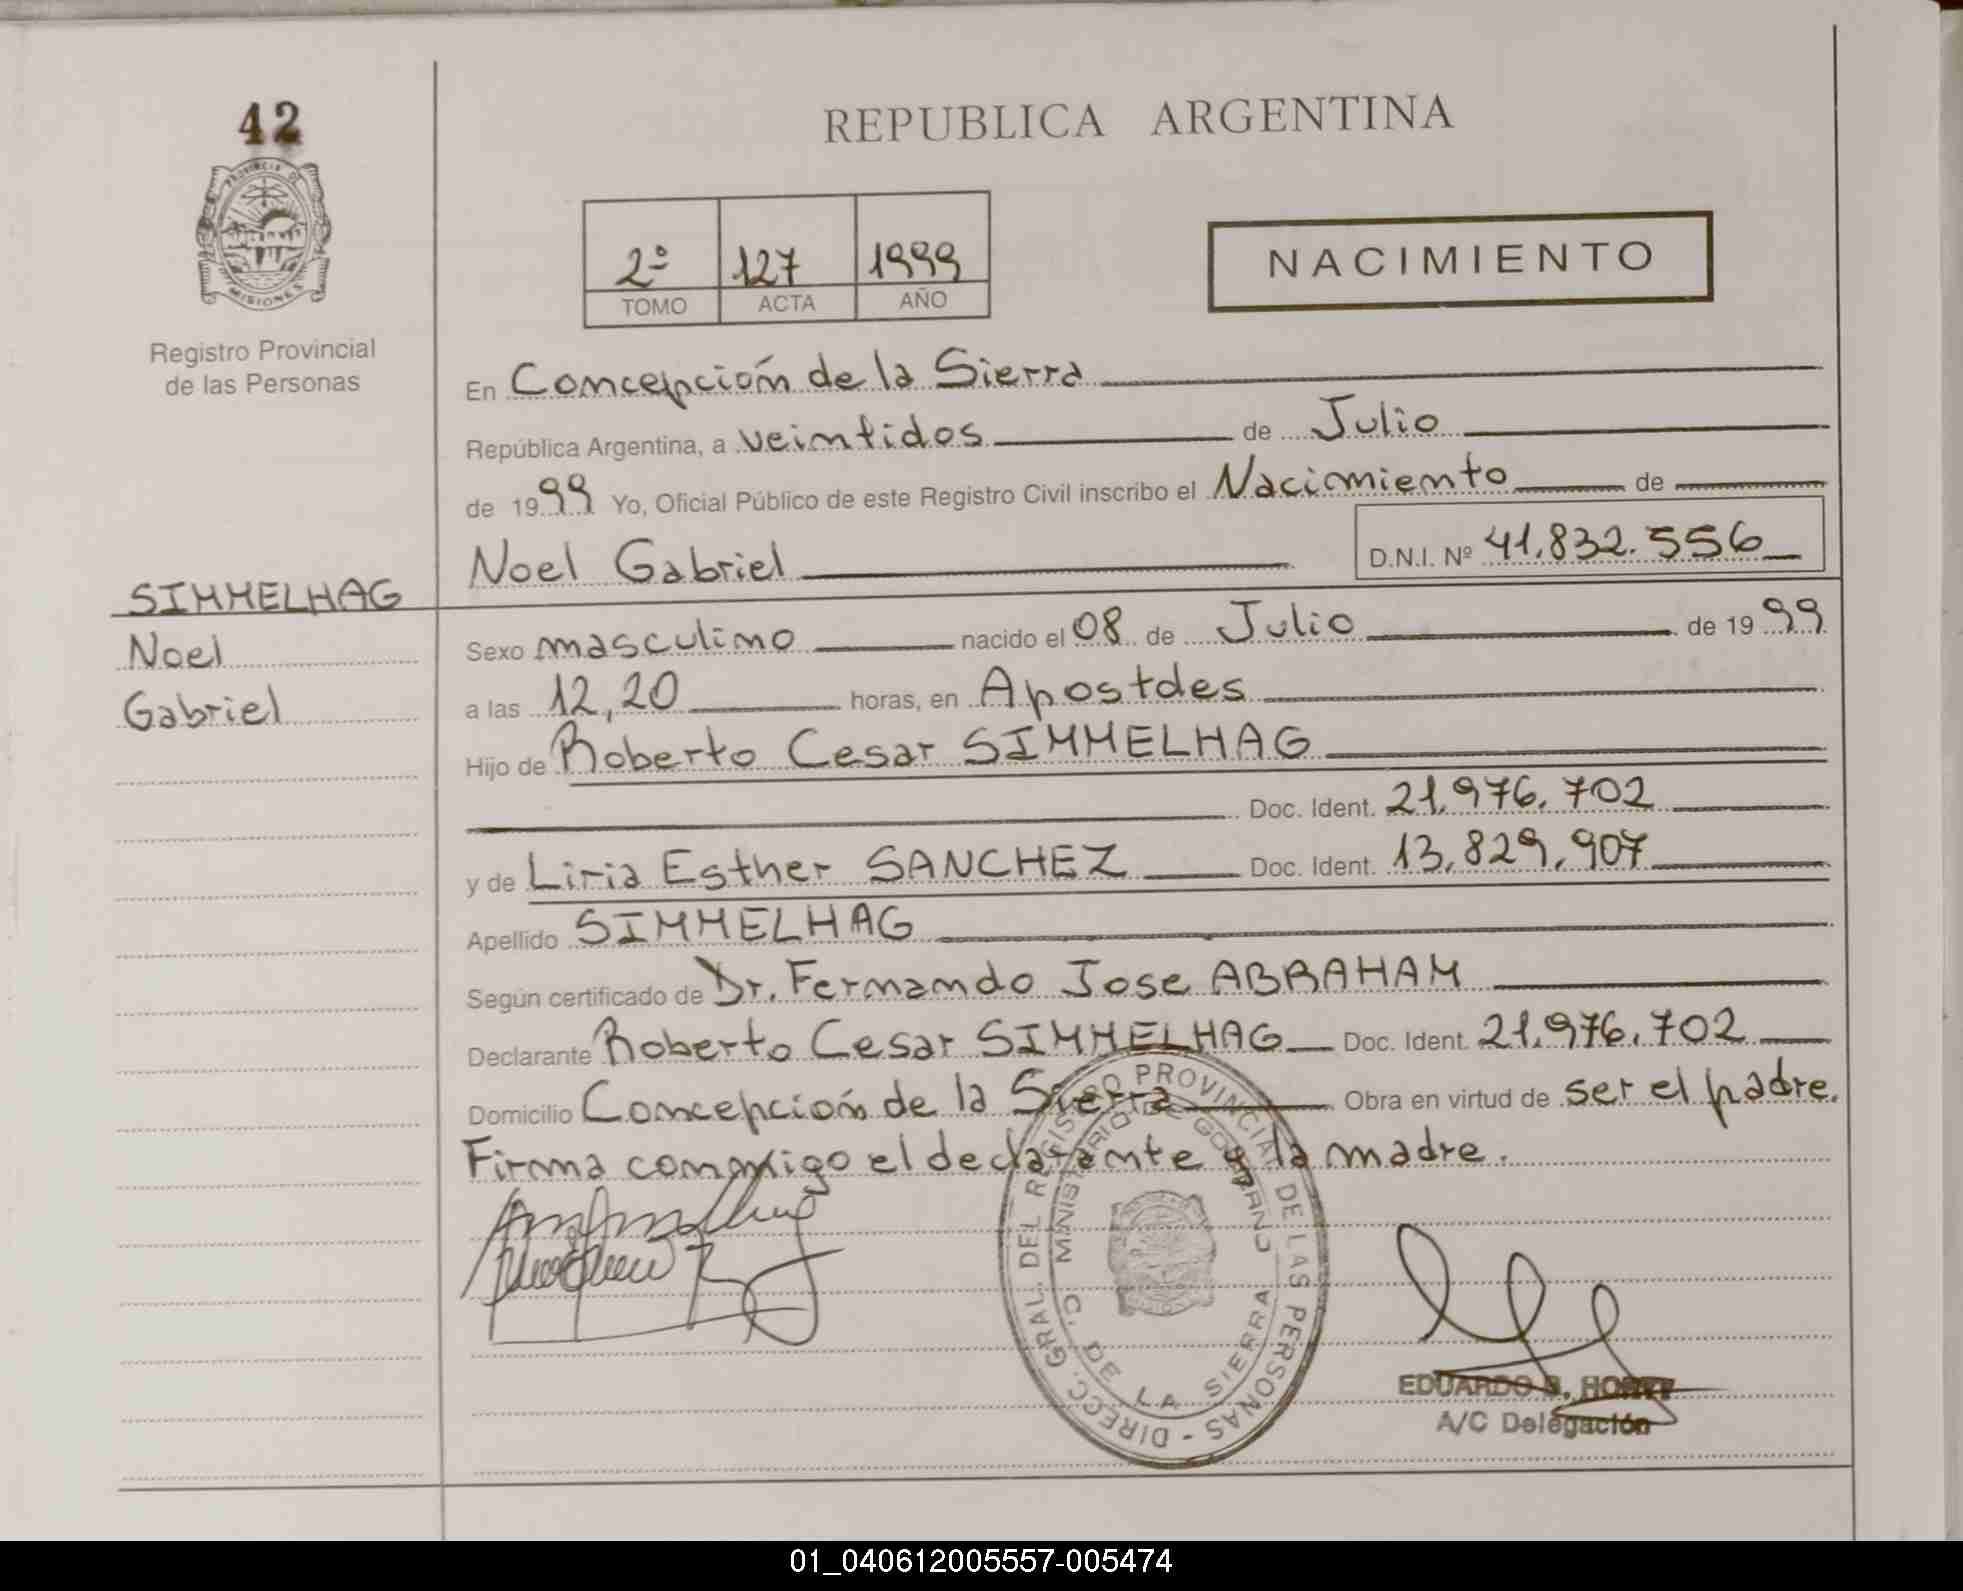 42
REPUBLICA ARGENTINA
PROVINCIA DE
MISIONES
Registro Provincial
de las Personas
2º 127 1999
TOMO ACTA AÑO
NACIMIENTO
En Concepción de la Sierra
República Argentina, a veintidos de Julio
de 1999 Yo, Oficial Público de este Registro Civil inscribo el Nacimiento de
Noel Gabriel D.N.I. Nº 41.832.556
SIMMELHAG
Noel
Gabriel
Sexo masculino nacido el 08 de Julio de 1999
a las 12,20 horas, en Apostoles
Hijo de Roberto Cesar SIMMELHAG
Doc. Ident. 21.976.702
y de Liria Esther SANCHEZ Doc. Ident. 13.829.907
Apellido SIMMELHAG
Según certificado de Dr. Fernando Jose ABRAHAM
Declarante Roberto Cesar SIMMELHAG Doc. Ident. 21.976.702
Domicilio Concepción de la Sierra Obra en virtud de ser el padre.
Firma conmigo el declarante y la madre.
DIRECC. GRAL. DEL REGISTRO PROVINCIAL DE LAS PERSONAS -
MINISTERIO DE GOBIERNO
C. DE LA SIERRA
EDUARDO
A/C Delegación
01_040612005557-005474